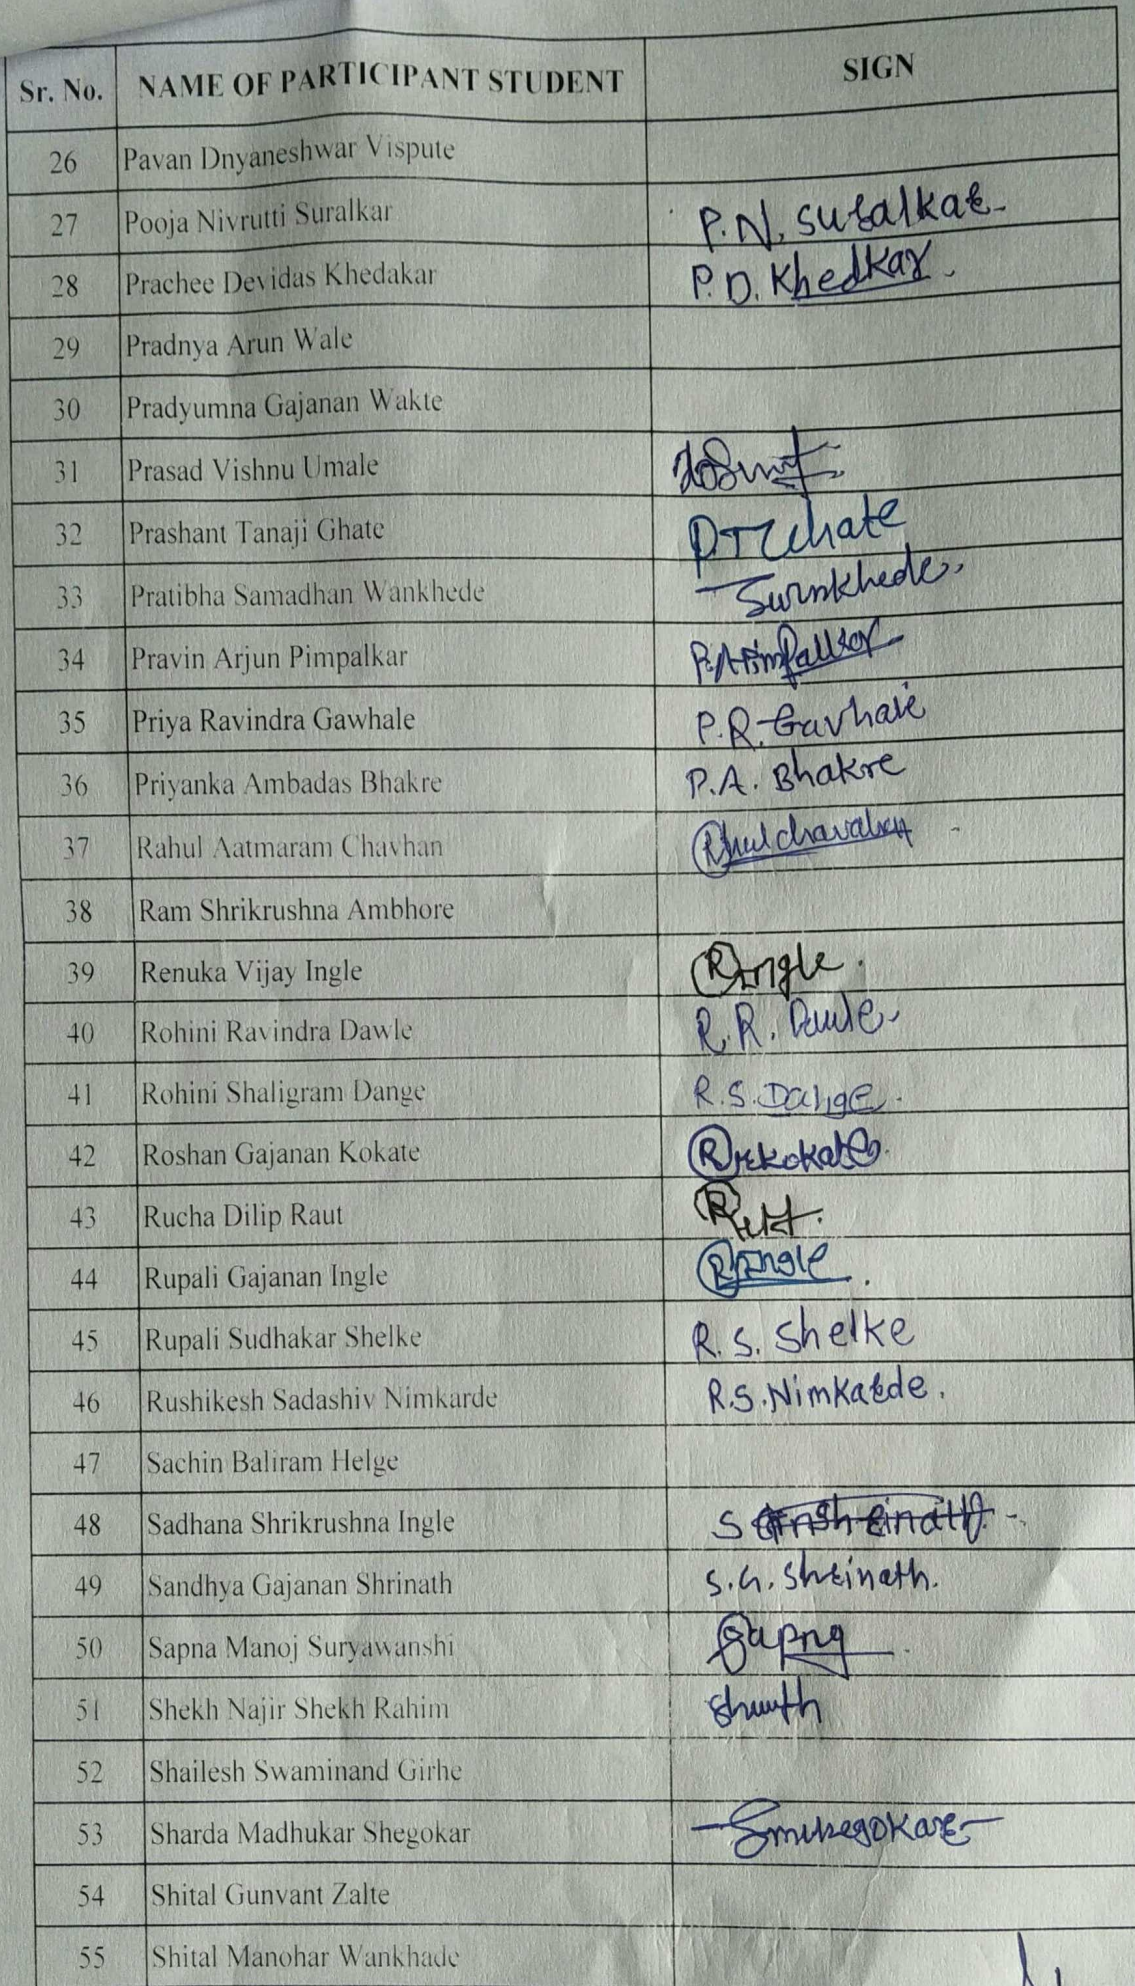 Sr. No. NAME OF PARTICIPANT STUDENT SIGN
26 Pavan Dnyaneshwar Vispute
27 Pooja Nivrutti Suralkar P.N. Suralkar
28 Prachee Devidas Khedakar P.D. Khedkar.
29 Pradnya Arun Wale
30 Pradyumna Gajanan Wakte
31 Prasad Vishnu Umale
32 Prashant Tanaji Ghate PTGhate
33 Pratibha Samadhan Wankhede
34 Pravin Arjun Pimpalkar P.A Pimpalkar
35 Priya Ravindra Gawhale P.R. Gavhale
36 Priyanka Ambadas Bhakre P.A. Bhakre
37 Rahul Aatmaram Chavhan
38 Ram Shrikrushna Ambhore
39 Renuka Vijay Ingle RIngle.
40 Rohini Ravindra Dawle R.R. Dawle.
41 Rohini Shaligram Dange R.S. Dange.
42 Roshan Gajanan Kokate
43 Rucha Dilip Raut
44 Rupali Gajanan Ingle RIngle.
45 Rupali Sudhakar Shelke R. S. Shelke
46 Rushikesh Sadashiv Nimkarde R.S. Nimkarde.
47 Sachin Baliram Helge
48 Sadhana Shrikrushna Ingle
49 Sandhya Gajanan Shrinath S.G. Shrinath.
50 Sapna Manoj Suryawanshi Sapna
51 Shekh Najir Shekh Rahim
52 Shailesh Swaminand Girhe
53 Sharda Madhukar Shegokar
54 Shital Gunvant Zalte
55 Shital Manohar Wankhade